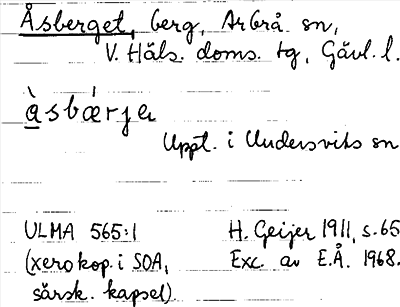 Åsberget, berg, Arbrå sn,
V. Häls. doms. tg, Gävl. l.
àsbǽrja
Uppt. i Undersviks sn
ULMA 565:1 H. Geijer 1911, s. 65
(xerokop. i SOA, Exc. av E.Å. 1968.
särsk. kapsel)